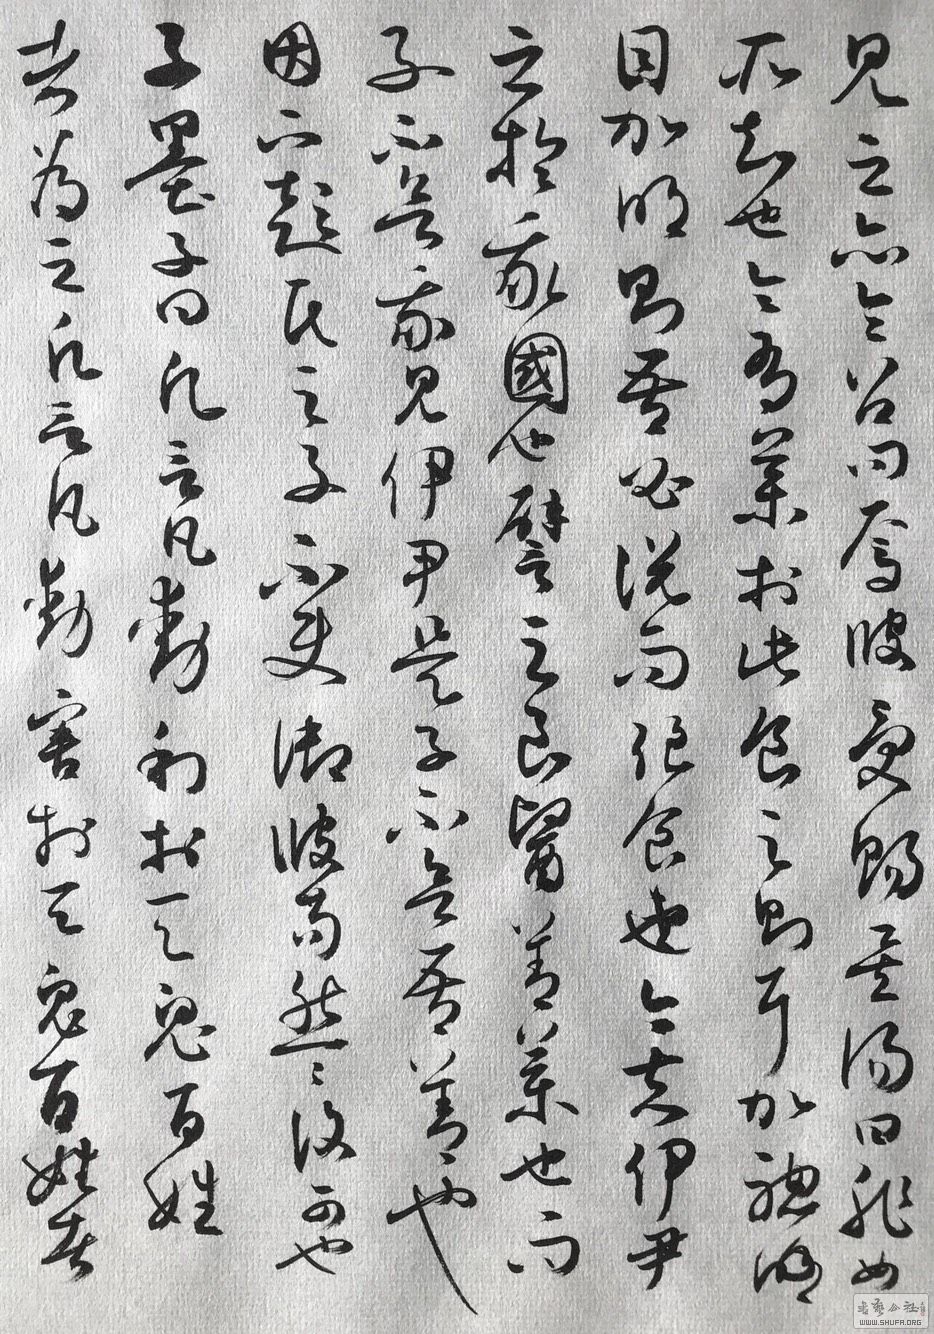 見之亦令召問焉彼受賜矣湯曰非女
所知也今有藥於此食之則耳加聰明
目加明則吾必說而強食也今夫伊尹
之於我國也譬之良醫善藥也而
子不欲我見伊尹是子不欲吾善也
因下彭氏之子不使御彼苟然々後可也
子墨子曰凡言凡動利於天鬼百姓
者為之凡言凡動害於天鬼百姓者
書藝公社
WWW.SHUFA.ORG